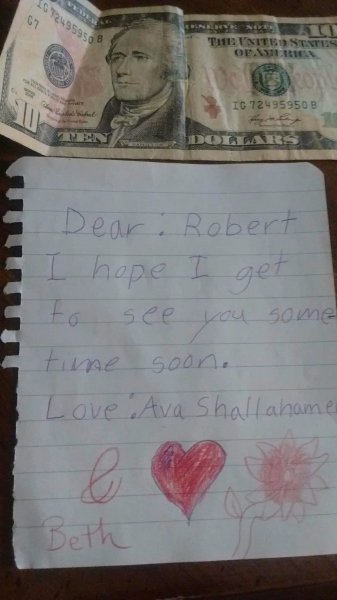 RESERVE NOTE
10
IG 72495950 B
G7
THE UNITED STATES
OF AMERICA
IG 72495950 B
10
TEN
DOLLARS
Dear: Robert
I hope I get
to see you some
time soon.
Love: Ava Shallahame
&
Beth